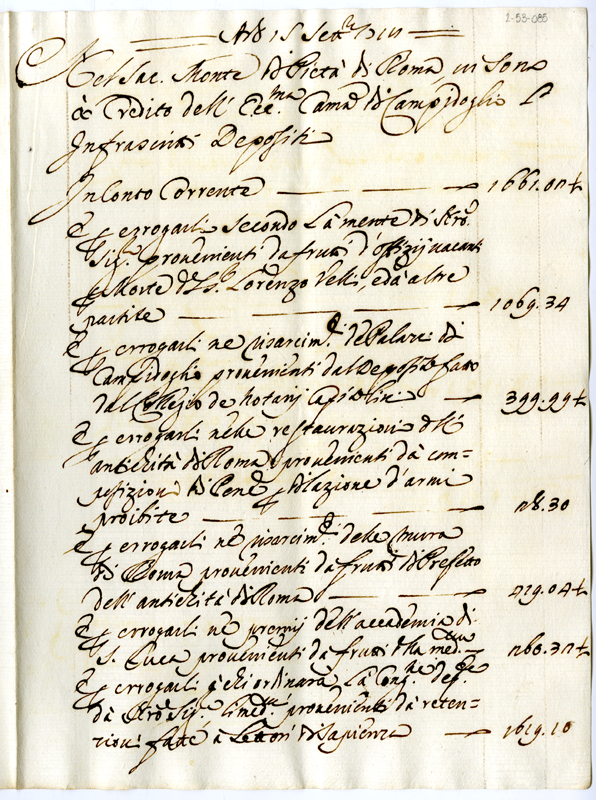 2-53-085
Adi 15 Sett.e
Nel Sac. Monte di Pietà di Roma, vi sono
à Credito dell' Ecc.ma Cam.a di Campidoglio L'
Infrascritti Depositi
In Conto Corrente 1661.00
E p erogarli secondo La mente di
Sig.e provenienti da frutti d'offizij vacanti
p Morte di S. Lorenzo Velli, e da altre
partite 1069.34
E p errogarli ne risarcim.ti de Palazzi di
Campidoglio provenienti dal Deposito fatto
dal Collegio de Notarij Capitolini 399.99
E p errogarli nelle restaurazioni dell'
antichità di Roma provenienti dà com-
posizioni di Pene p dilazione d'armi
proibite 30
E p errogarli ne risarcim.ti delle Mura
di Roma provenienti da frutti di Prefetto
dell' antichità di Roma
E p errogarli ne premij dell' accademia di
S. Luca provenienti da frutti della med.ma
E p errogarli à chi ordinarà La Cong.ne dep.ta
dà provenienti dà reten-
zioni fatte à Lettori di Sapienza 1619.10